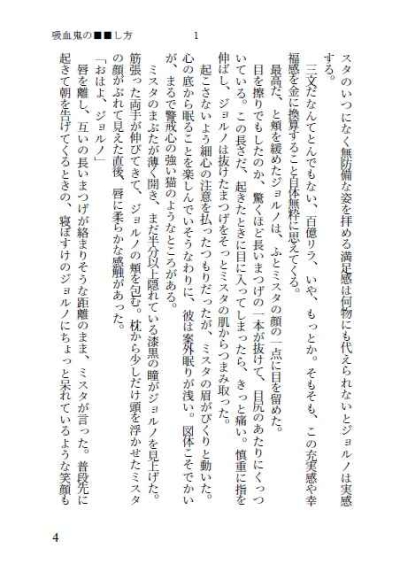 吸血鬼の■■し方
1
スタのいつになく無防備な姿を拝める満足感は何物にも代えられないとジョルノは実感
する。
三文だなんてとんでもない、百億リラ、いや、もっとか。そもそも、この充実感や幸
福感を金に換算すること自体無粋に思えてくる。
最高だ、と頬を緩めたジョルノは、ふとミスタの顔の一点に目を留めた。
目を擦りでもしたのか、驚くほど長いまつげの一本が抜けて、目尻のあたりにくっつ
いている。この長さだ、起きたときに目に入ってしまったら、きっと痛い。慎重に指を
伸ばし、ジョルノは抜けたまつげをそっとミスタの肌からつまみ取った。
起こさないよう細心の注意を払ったつもりだったが、ミスタの眉がぴくりと動いた。
心の底から眠ることを楽しんでいそうなわりに、彼は案外眠りが浅い。図体こそでかい
が、まるで警戒心の強い猫のようなところがある。
ミスタのまぶたが薄く開き、まだ半分以上隠れている漆黒の瞳がジョルノを見上げた。
筋張った両手が伸びてきて、ジョルノの頬を包む。枕から少しだけ頭を浮かせたミスタ
の顔がぶれて見えた直後、唇に柔らかな感触があった。
「おはよ、ジョルノ」
唇を離し、互いの長いまつげが絡まりそうな距離のまま、ミスタが言った。普段先に
起きて朝を告げてくるときの、寝ぼすけのジョルノにちょっと呆れているような笑顔も
4